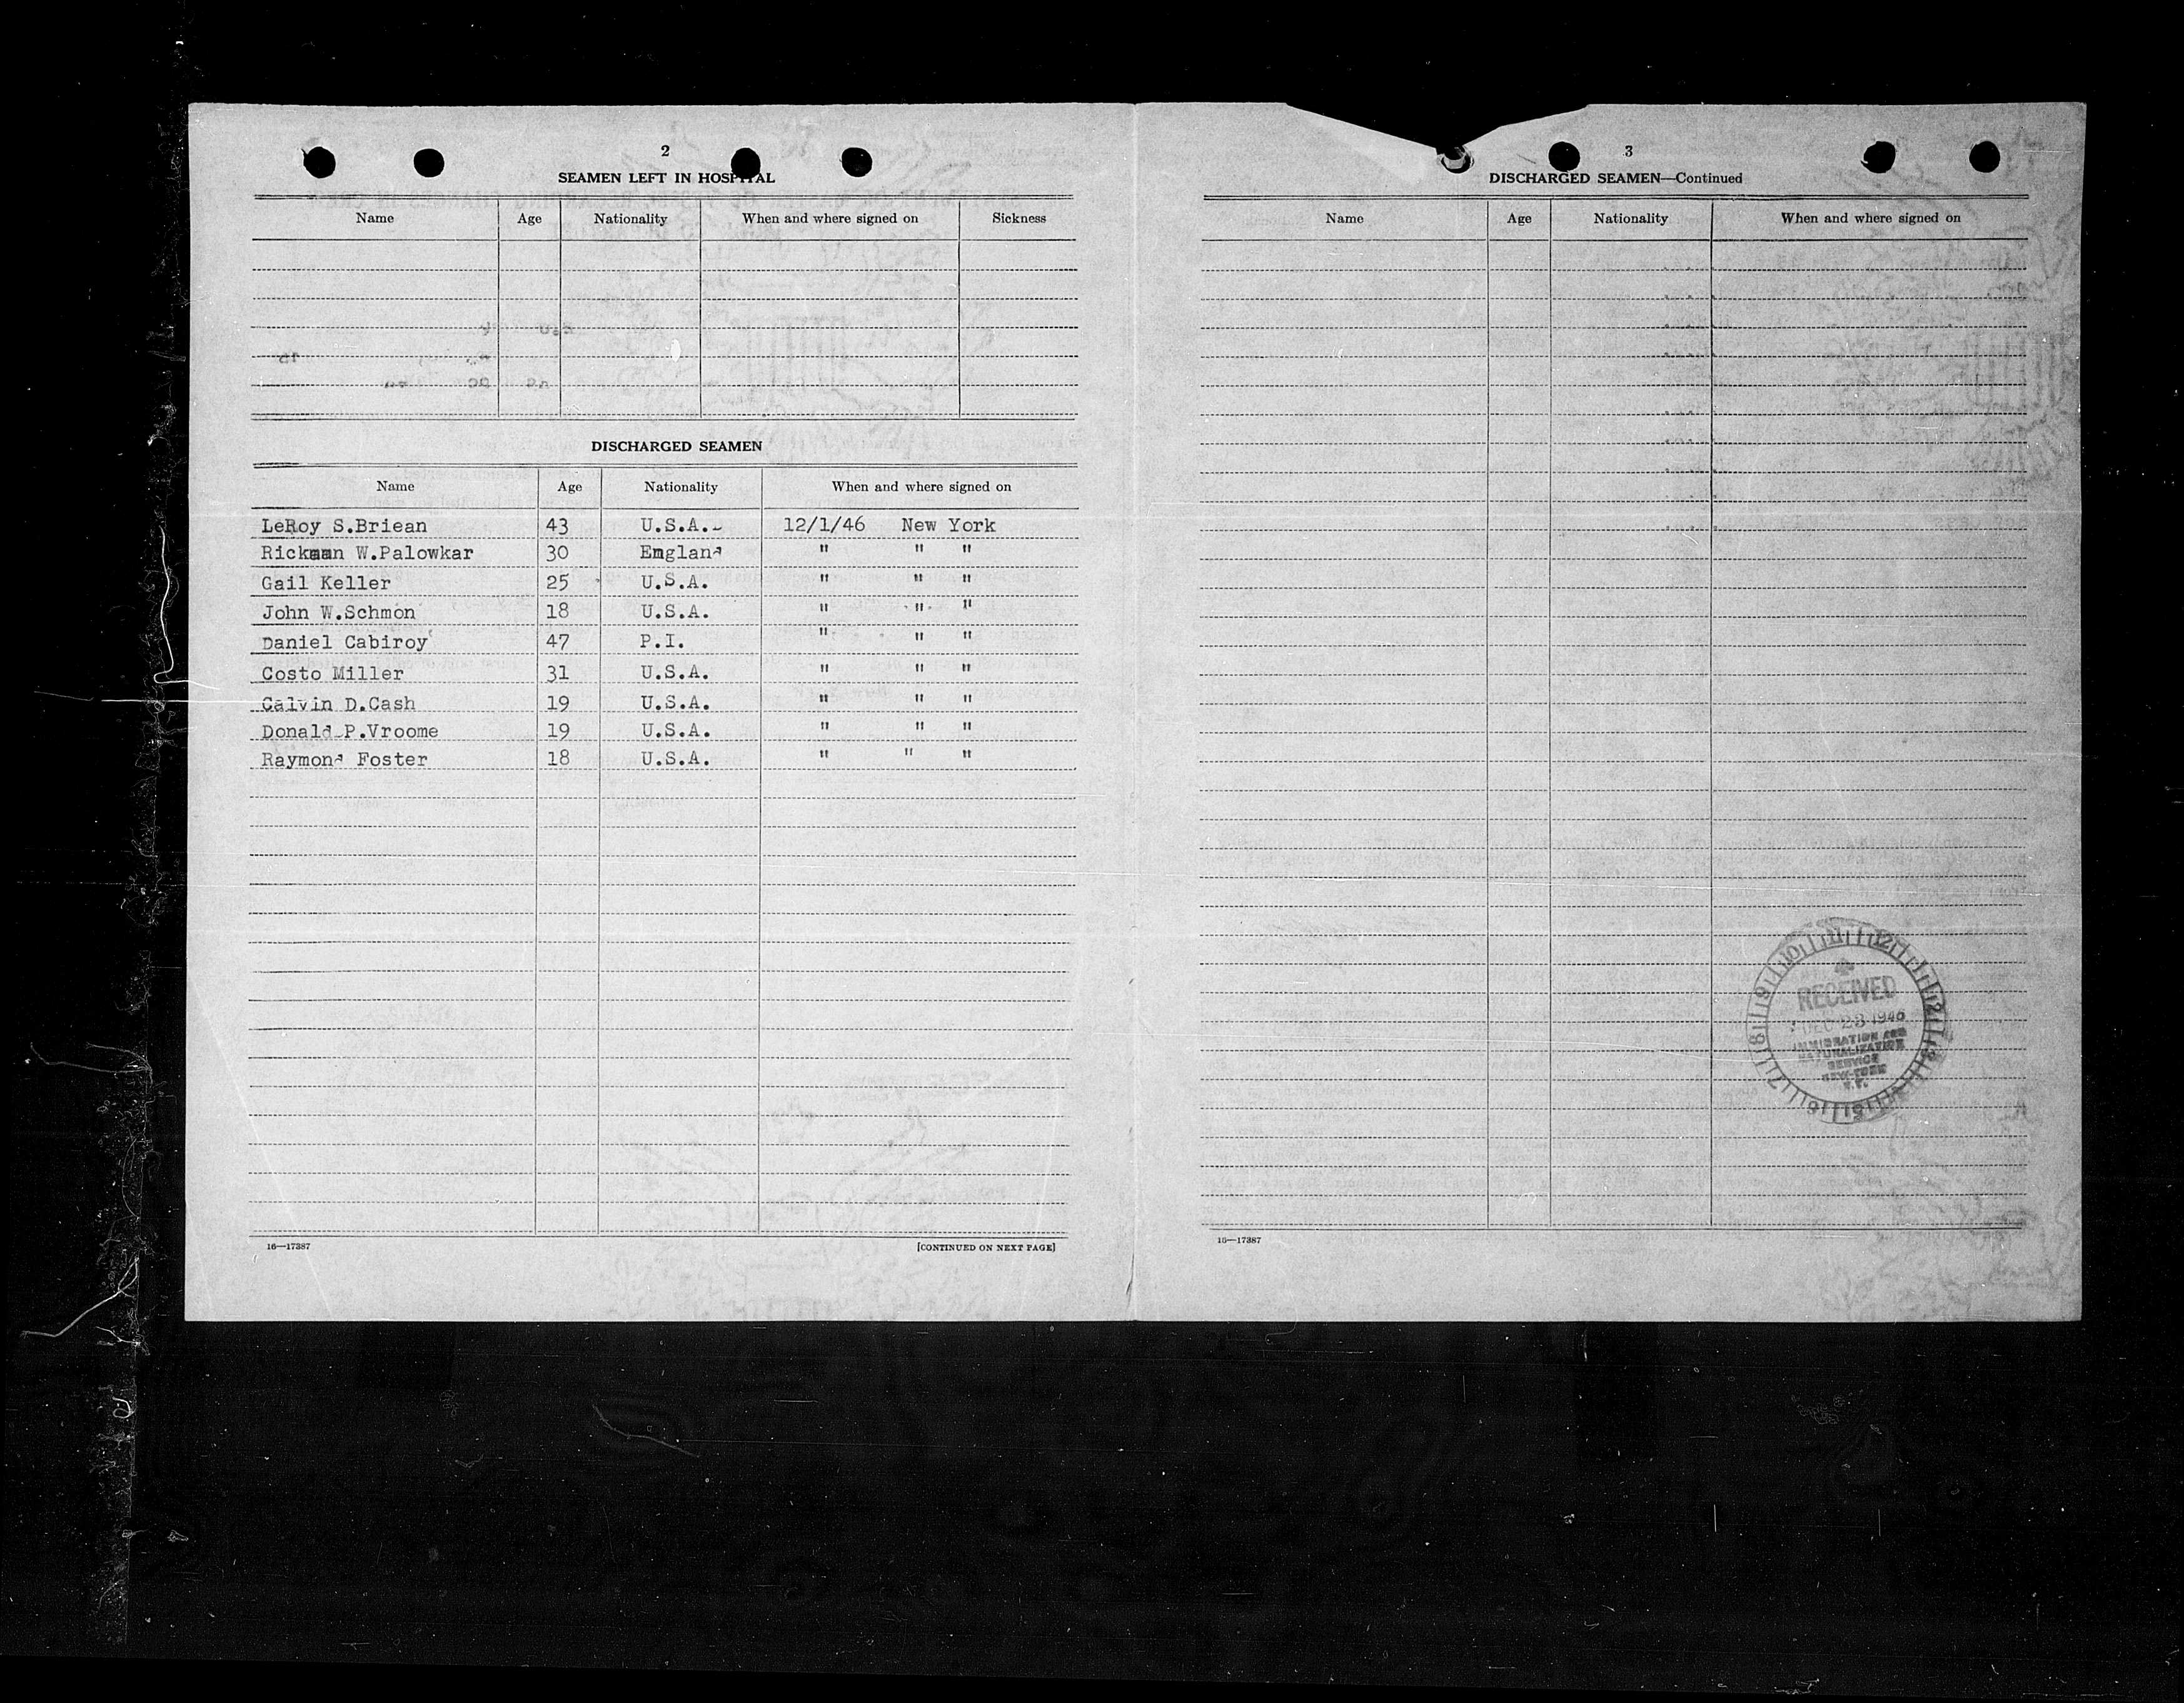 2
SEAMEN LEFT IN HOSPITAL
Name Age Nationality When and where signed on Sickness
DISCHARGED SEAMEN
Name Age Nationality When and where signed on
LeRoy S.Briean 43 U.S.A. 12/1/46 New York
Rickman W.Palowkar 30 England " " "
Gail Keller 25 U.S.A. " " "
John W.Schmon 18 U.S.A. " " "
Daniel Cabiroy 47 P.I. " " "
Costo Miller 31 U.S.A. " " "
Calvin D.Cash 19 U.S.A. " " "
Donald P.Vroome 19 U.S.A. " " "
Raymond Foster 18 U.S.A. " " "
16—17387 [CONTINUED ON NEXT PAGE]
3
DISCHARGED SEAMEN—Continued
Name Age Nationality When and where signed on
RECEIVED
DEC 23 1946
IMMIGRATION AND
NATURALIZATION
SERVICE
NEW YORK
N.Y.
16—17387